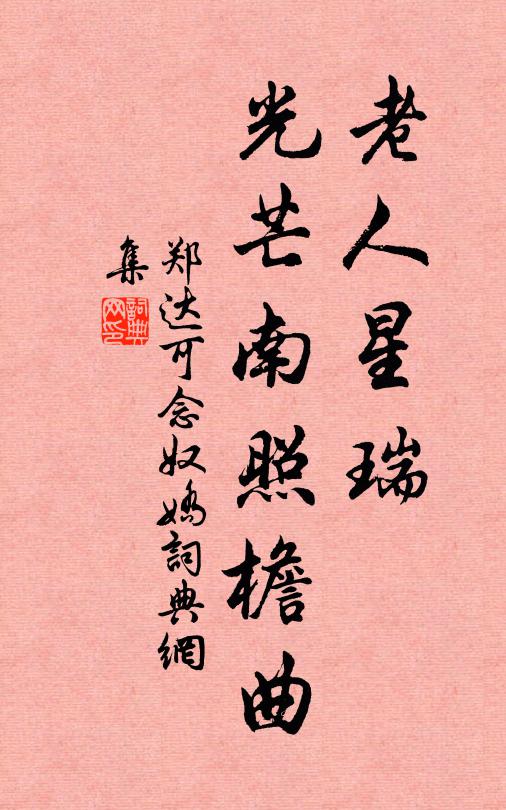 老人星瑞
光芒南照檐曲
郑达可念奴嬌詞典網
集
詞典
网印